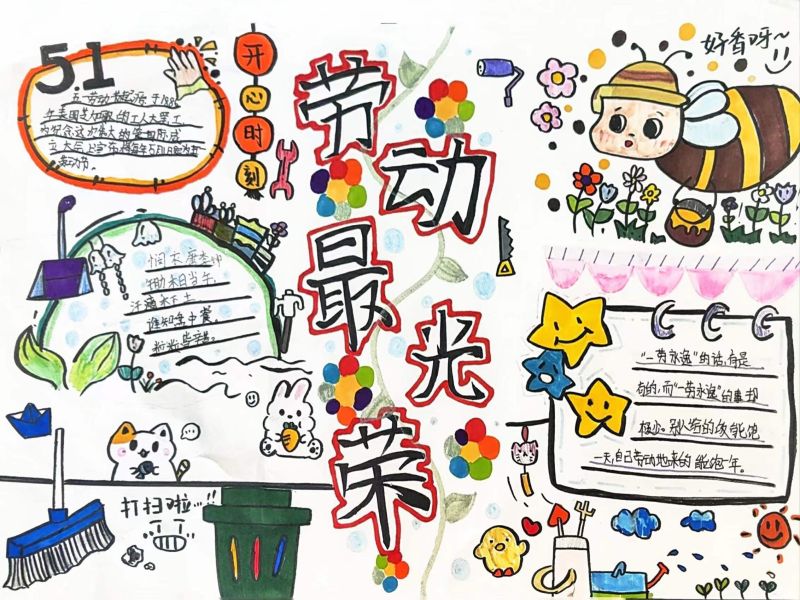 5.1
五一劳动节起源于1886
年美国芝加哥的工人大罢工
为纪念这次伟大的
立大会上宣布将每年5月1日定为国
劳动节。
开心时刻
劳动最光荣
好香呀~
悯农
锄禾日当午,
汗滴禾下土
谁知盘中餐。
粒粒皆辛苦。
"一劳永逸"的话,有是
有的,而"一劳永逸"的事却
极少。别人给的
一天,自己劳动
打扫啦...!!